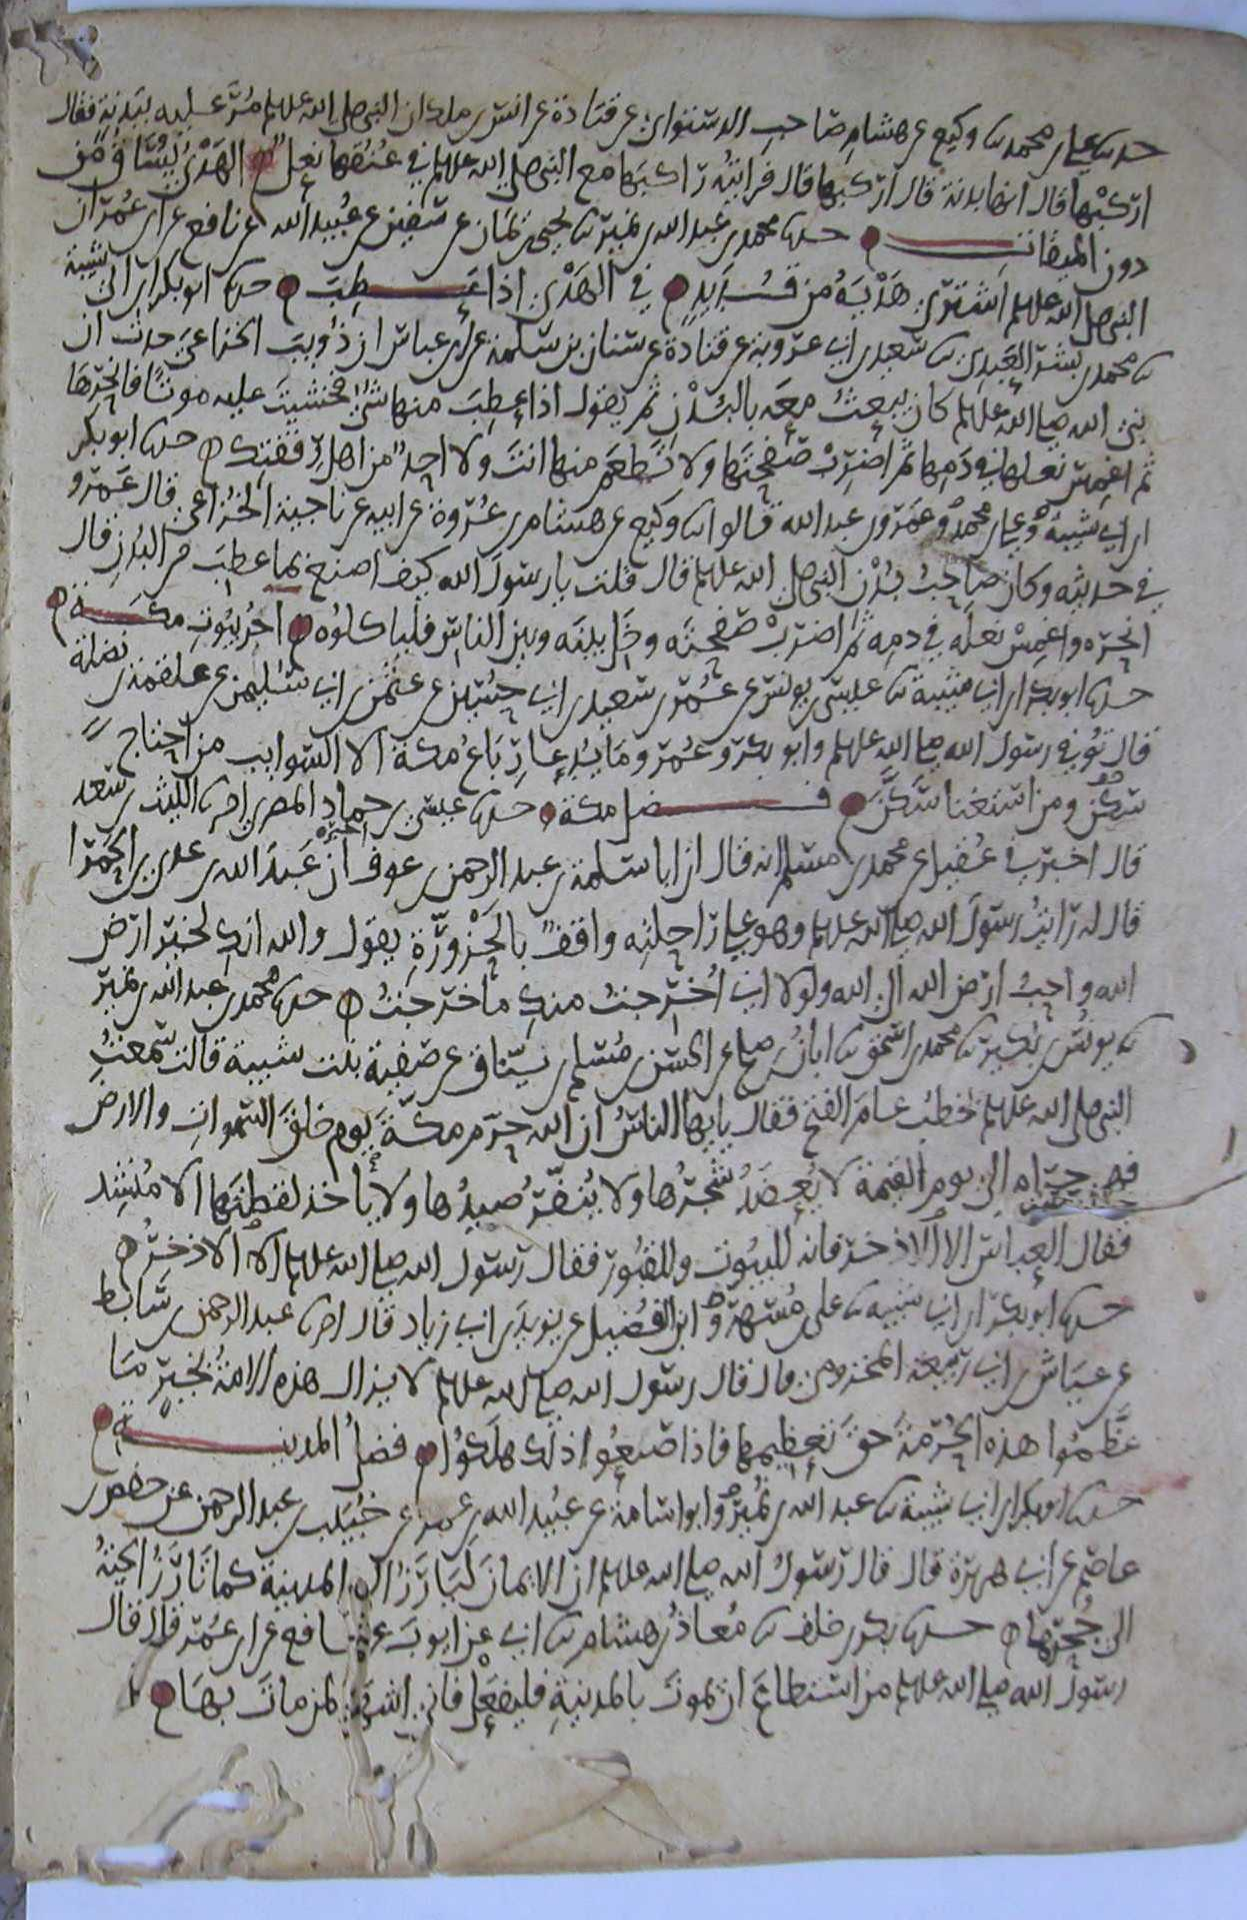 حدثنا علي بن محمد ثنا وكيع عن هشام صاحب الدستوائي عن قتادة عن انس بن ملك ان النبي صلى الله عليه وسلم مُرَّ عليه ببَدَنة فقال
ارْكبْها قال انها بدنة قال ارْكبها قال فرايتُه رَاكبَها مع النبي صلى الله عليه وسلم في عُنُقها نعل الهَدْي يُسَاقُ من
دون الميقات حدثنا محمد بن عبد الله بن نمير ثنا يحيى بن يمان عن سفين عن عُبيد الله عن نافع عن ابن عُمر ان
النبي صلى الله عليه وسلم اشترى هَدْيَهُ من قُدَيدٍ في الهَدْي اذا عَطِبَ حدثنا ابو بكر بن ابي شيبة
ثنا محمد بن بشر العَبدي ثنا سعيد بن ابي عروبة عن قتادة عن سنان بن سلمة عن ابن عباس ان ذُؤيب الخزاعي حدث ان
نبي الله صلى الله عليه وسلم كان يبعثُ معه بالبُدْن ثم يقول اذا عَطِبَ منها شئٌ فخشيتَ عليه موتًا فانحرها
ثم اغمِسْ نعلها في دَمِها ثم اضرِبْ صَفْحتَها ولا تَطْعَم منها انتَ ولا احدٌ من اهل رفقتك حدثنا ابو بكر
ابن ابي شيبةَ وعلي بن محمدٍ وعَمرو بن عبد الله قالوا ثنا وكيع عن هشام بن عُروة عن ابيه عن ناجية الخُزاعي قال عَمرو
في حديثه وكان صاحبُ بُدْن النبي صلى الله عليه وسلم قال قلت يا رسولَ الله كيف اصنع بما عطِبَ من البُدن قال
انحَرْه واغمِسْ نعلَه في دمِه ثم اضرِبْ صَفحتَه وخَلِّ بينَه وبين الناسِ فلياكلوُه اجرُ بيُوتِ مكة
حدثنا ابو بكر بن ابي شيبة ثنا عيسى بن يونس عن عُمر بن سعيد بن ابي حسين عن عثمن بن ابي سليمن عن علقمة بن نضلة
قال تُوفي رسول الله صلى الله عليه وسلم وابو بكر وعُمر وما تُدعا رِبَاعُ مكة الا السوايب من احتاج
سَكَنَ ومن استغنا سَكَّنَ فضل مكة حدثنا عيسى بن حماد المصري اخبرنا الليث بن سعد
قال اخبرني عُقيل عن محمد بن مسلم انه قال ان ابا سلمة بن عبد الرحمن بن عوف اخبره ان عَبدَ الله بن عدي بن الحَمرا
قال له رَايتُ رسولَ الله صلى الله عليه وسلم وهو على رَاحلتِه واقفٌ بالحَزْوَرَّةِ يقول والله انكِ لخير ارْض
الله واحبُّ ارْض الله الى الله ولولا اني اُخْرِجتُ منكِ ما خَرجتُ حدثنا محمد بن عبد الله بن نمير
ثنا يونُس بن بُكير ثنا محمد بن اسحق ثنا ابانُ بن صلح عن الحسن بن مُسلم بن يَنّاق عن صَفية بنت شيبة قالت سمعتُ
النبي صلى الله عليه وسلم خطبُ عامَ الفتح فقال يايها الناسُ ان الله حرّمَ مكةَ يومَ خلقَ السموات والارض
فهي حرام الى يوم القيمة لا يُعضَدُ شَجَرُها ولا يُنفَّرُ صيدُها ولا ياخذ لقطَتَها الا مُنشِد
فقال العباس الا الاذخر فانه للبيُوت وللقُبُور فقال رَسول الله صلى الله عليه وسلم الا الاذخرُ
حدثنا ابو بكر بن ابي شيبه ثنا علي بن مُسْهِرٍ وابن الفُضيل عن يزيدَ بن ابي زياد قال اخبرنا عبد الرحمن بن سَابط
عن عيَاش بن ابي رَبيعة المخزومي قال قال رسول الله صلى الله عليه وسلم لا يزال هذه الامةُ بخيرٍ ما
عَظَّمُوا هذه الحُرْمةَ حَقَّ تعظيمها فاذا ضيعُوا ذلك هلكوُا فضلُ المدينة
حدثنا ابو بكر بن ابي شيبة ثنا عبد الله بن نُميرٍ وابو اسامة عن عبيد الله بن عمر عن خبُيَب بن عبد الرحمن عن حفص بن
عاصم عن ابي هريرة قال قال رَسولُ الله صلى الله عليه وسلم ان الايمانَ لَيَارَزُ الى المدينة كما تَارَزُ الحيةُ
الى جُحْرِها حدثنا بكر بن خلف ثنا مُعاذُ بن هشام ثنا ابي عن ايوبَ عن نافع عن ابن عُمر قال قال
رسولُ الله صلى الله عليه وسلم من استطاعَ ان يموتَ بالمدينةِ فليفعَلْ فاني اشهَدُ لمن ماتَ بها